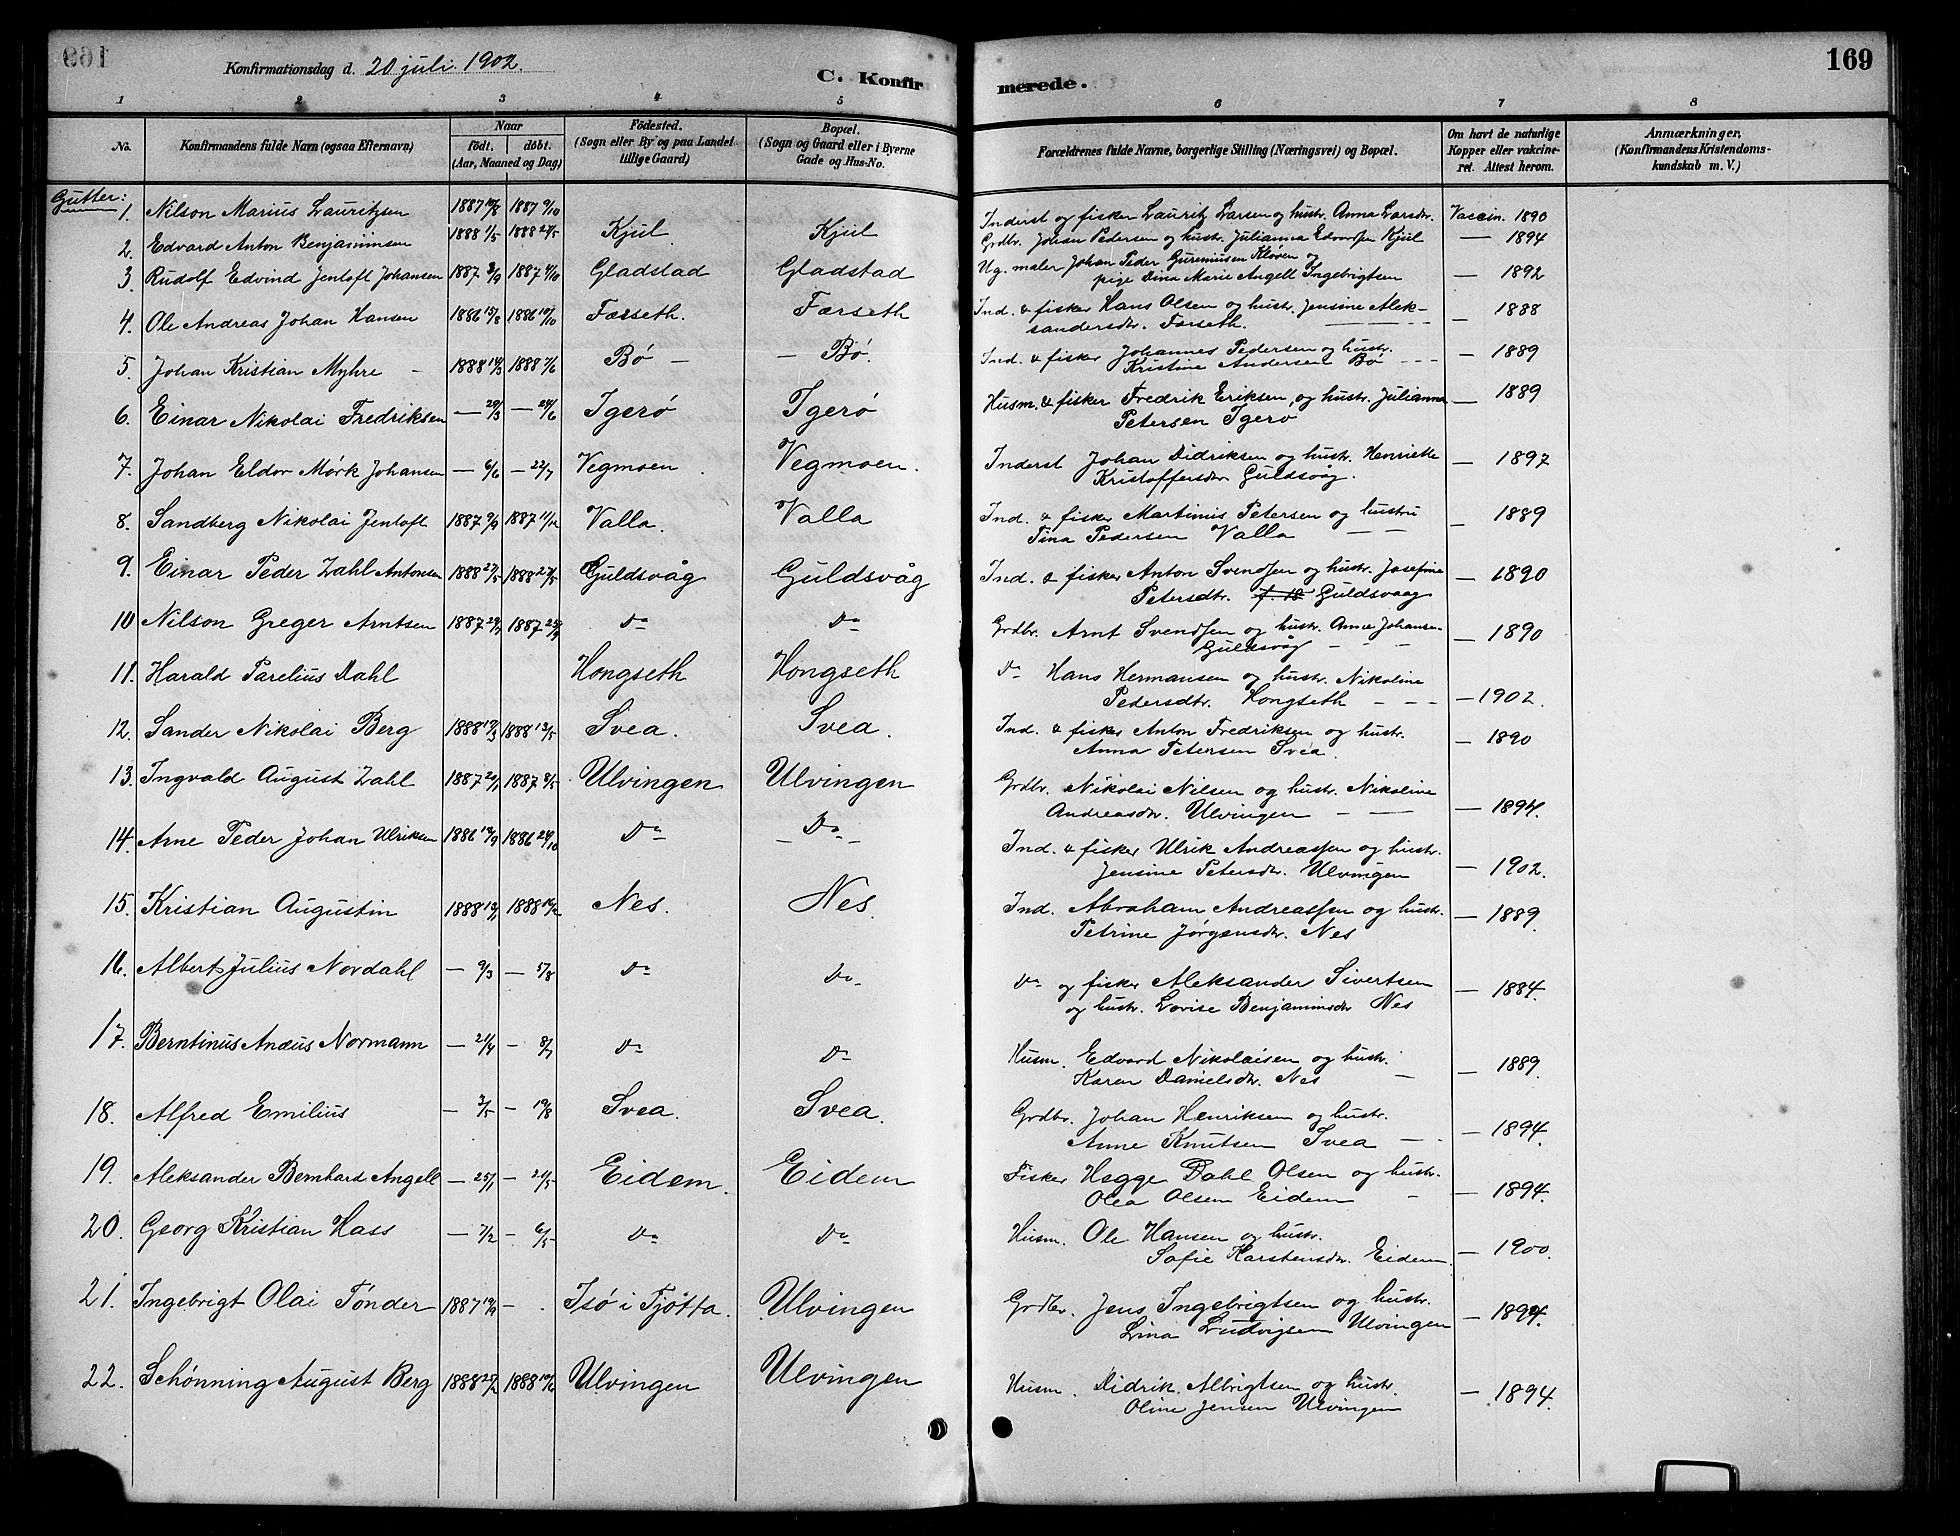 169
Konfirmationsdag d. 20 juli 1902.
C. Konfirmerede.
1 2 3 4 5 6 7 8
No.
Konfirmandens fulde Navn (ogsaa Efternavn)
Naar
født. døbt.
(Aar, Maaned og Dag)
Födested.
(Sogn eller By og paa Landet
tillige Gaard)
Bopæl.
(Sogn og Gaard eller i Byerne
Gade og Hus-No.
Forældrenes fulde Navne, borgerlige Stilling (Næringsvei) og Bopæl.
Om havt de naturlige
Kopper eller vakcine-
ret. Attest herom.
Anmærkninger,
(Konfirmandens Kristendoms-
kundskab m. V.)
Gutter:
1. Nilson Marius Lauritzsen 1887 1887 9/10 Inderst og fisker Lauritz Larsen og hustr. Anna Larsdr. Vaccin. 1890
2. Edvard Anton Benjaminsen 1888 1/5 1888 27/5 Kjul Kjul Grdbr. Johan Pedersen og hustr. Julianna Edvardsen Kjul — 1894
3. Rudolf Edvind Jentoft Johansen 1887 3/9 1887 9/10 Gladstad Gladstad Ug. maler Johan Peder Kløven og
pige Dina Marie Angell Ingebrigtsen — 1892
4. Ole Andreas Johan Hansen 1886 15/8 1886 17/10 Færseth. Færseth Ind. & fisker Hans Olsen og hustr. Jensine Alek-
sandersdtr. Færseth. — 1888
5. Johan Kristian Myhre 1888 14/3 1888 7/6 Bø — — Bø. Ind. & fisker Johannes Pedersen og hustr.
Kristine Andersen Bø — 1889
6. Einar Nikolai Fredriksen — 29/3 — 24/6 Igerø Igerø Husm. & fisker Fredrik Eriksen og hustr. Julianna
Petersen Igerø — 1889
7. Johan Eldor Mørk Johansen — 6/6 — 22/7 Vegmoen Vegmoen. Inderst Johan Didriksen og hustr. Henriette
Kristoffersdr Guldsvåg. — 1897
8. Sandberg Nikolai Jentoft 1887 9/9 1887 11/12 Valla. Valla Ind. & fisker Martinus Petersen og hustru
Tina Pedersen Valla — 1889
9. Einar Peder Zahl Antonsen 1888 27/5 1888 27/5 Guldsvåg Guldsvåg Ind. & fisker Anton Svendsen og hustr. Josefine
Petersdtr. Guldsvaag — 1890
10 Nilson Greger Arntsen 1887 29/7 1887 25/9 Do Do Grdbr. Arnt Svendsen og hustr. Anne Johansen
Guldsvåg — 1890
11. Harald Parelius Dahl Hongseth Hongseth Do Hans Hermansen og hustr. Nikoline
Pedersdtr. Hongseth — 1902.
12. Sander Nikolai Berg 1888 1888 13/5 Svea. Svea. Ind. & fisker Anton Fredriksen og hustr.
Anna Petersen Svea. — 1890
13. Ingvald August Zahl 1887 29/1 1887 8/5 Ulvingen Ulvingen Grdbr. Nikolai Nilsen og hustr. Nikoline
Andreasdtr. Ulvingen — 1894.
14. Arne Peder Johan Ulriksen 1886 19/9 1886 24/10 Do — Do — Ind. & fisker Ulrik Andreassen og hustr.
Jensine Petersdtr. Ulvingen — 1902.
15. Kristian Augustin 1888 1888 Nes. Nes. Ind. Abraham Andreassen og hustr.
Petrine Jørgensdtr. Nes — 1889.
16. Albert Julius Nordahl — 9/3 — 5/8 Do Do Do og fisker Aleksander Sivertsen
og hustr. Lovise Benjaminsdtr Nes — 1884.
17. Berntinus Anæus Normann — 21/4 — 8/7 Do Do Husm. Edvard Nikolaisen og hustr.
Karen Danielsdtr. Nes — 1889.
18. Alfred Emilius — 3/5 — 19/8 Svea. Svea. Grdbr. Johan Henriksen og hustr.
Anne Knutsen Svea — 1894.
19. Aleksander Bernhard Angell — 25/1 — 21/5 Eidem. Eidem Fisker Hegge Dahl Olsen og hustr.
Olea Olsen Eidem — 1894.
20. Georg Kristian Hass — 7/2 — 6/5 Do Do Husm. Ole Hansen og hustr.
Sofie Karstensdr. Eidem. — 1900.
21. Ingebrigt Olai Tønder 1887 19/9 — Isø i Tjøtta. Ulvingen Grdbr. Jens Ingebrigtsen og hustr.
Lina Ludvigsen Ulvingen — 1894.
22. Schønning August Berg 1888 25/2 1888 10/6 Ulvingen Ulvingen Husm. Didrik Albrigtsen og hustr.
Oline Jensen Ulvingen — 1894.